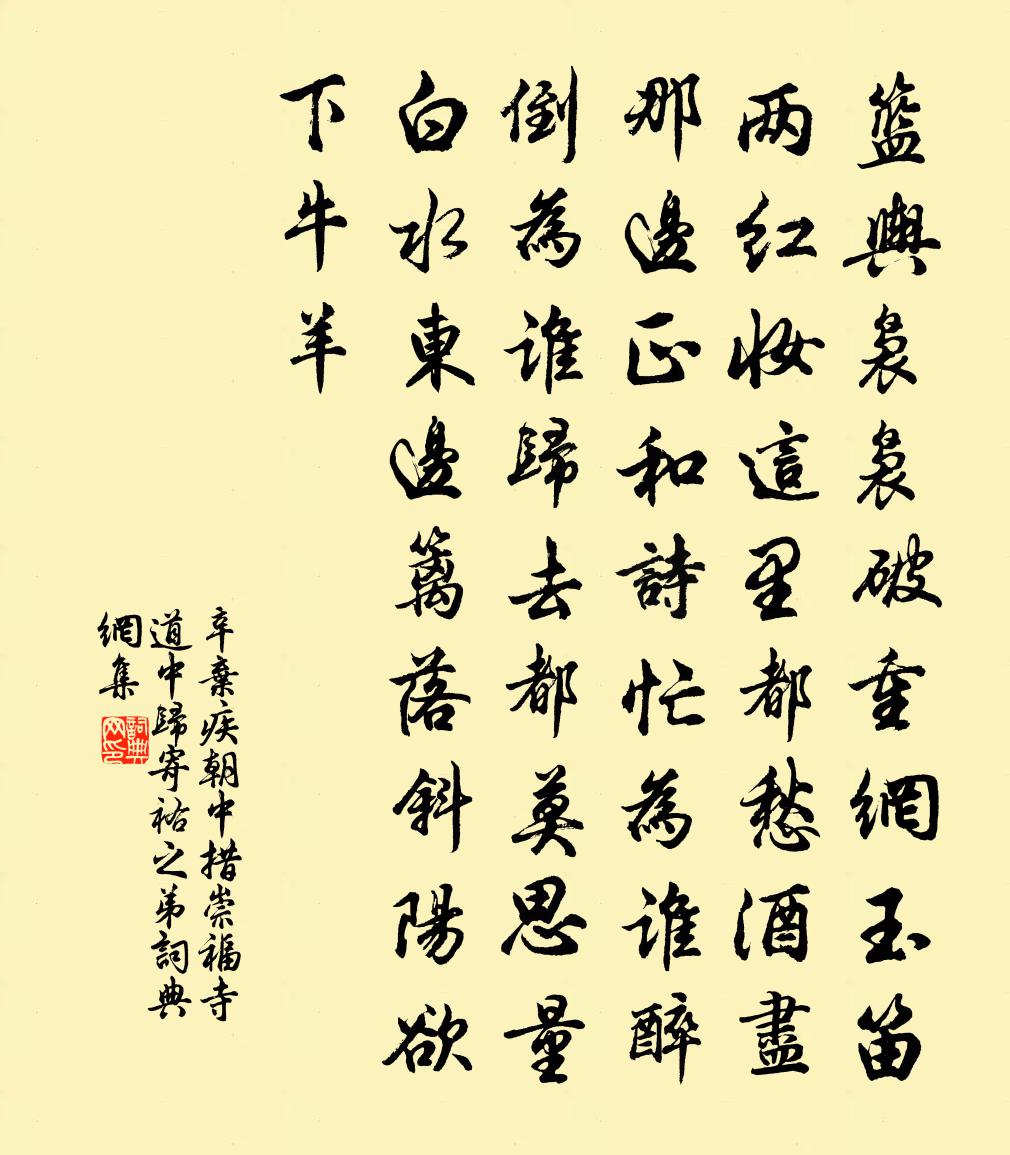 籃輿裊裊破重網玉笛
两红妆這里都愁酒盡
那邊正和詩忙為誰醉
倒為誰歸去都莫思量
白水東邊籬落斜陽欲
下牛羊
辛棄疾朝中措崇福寺
道中歸寄祐之弟詞典
網集
詞典
网印